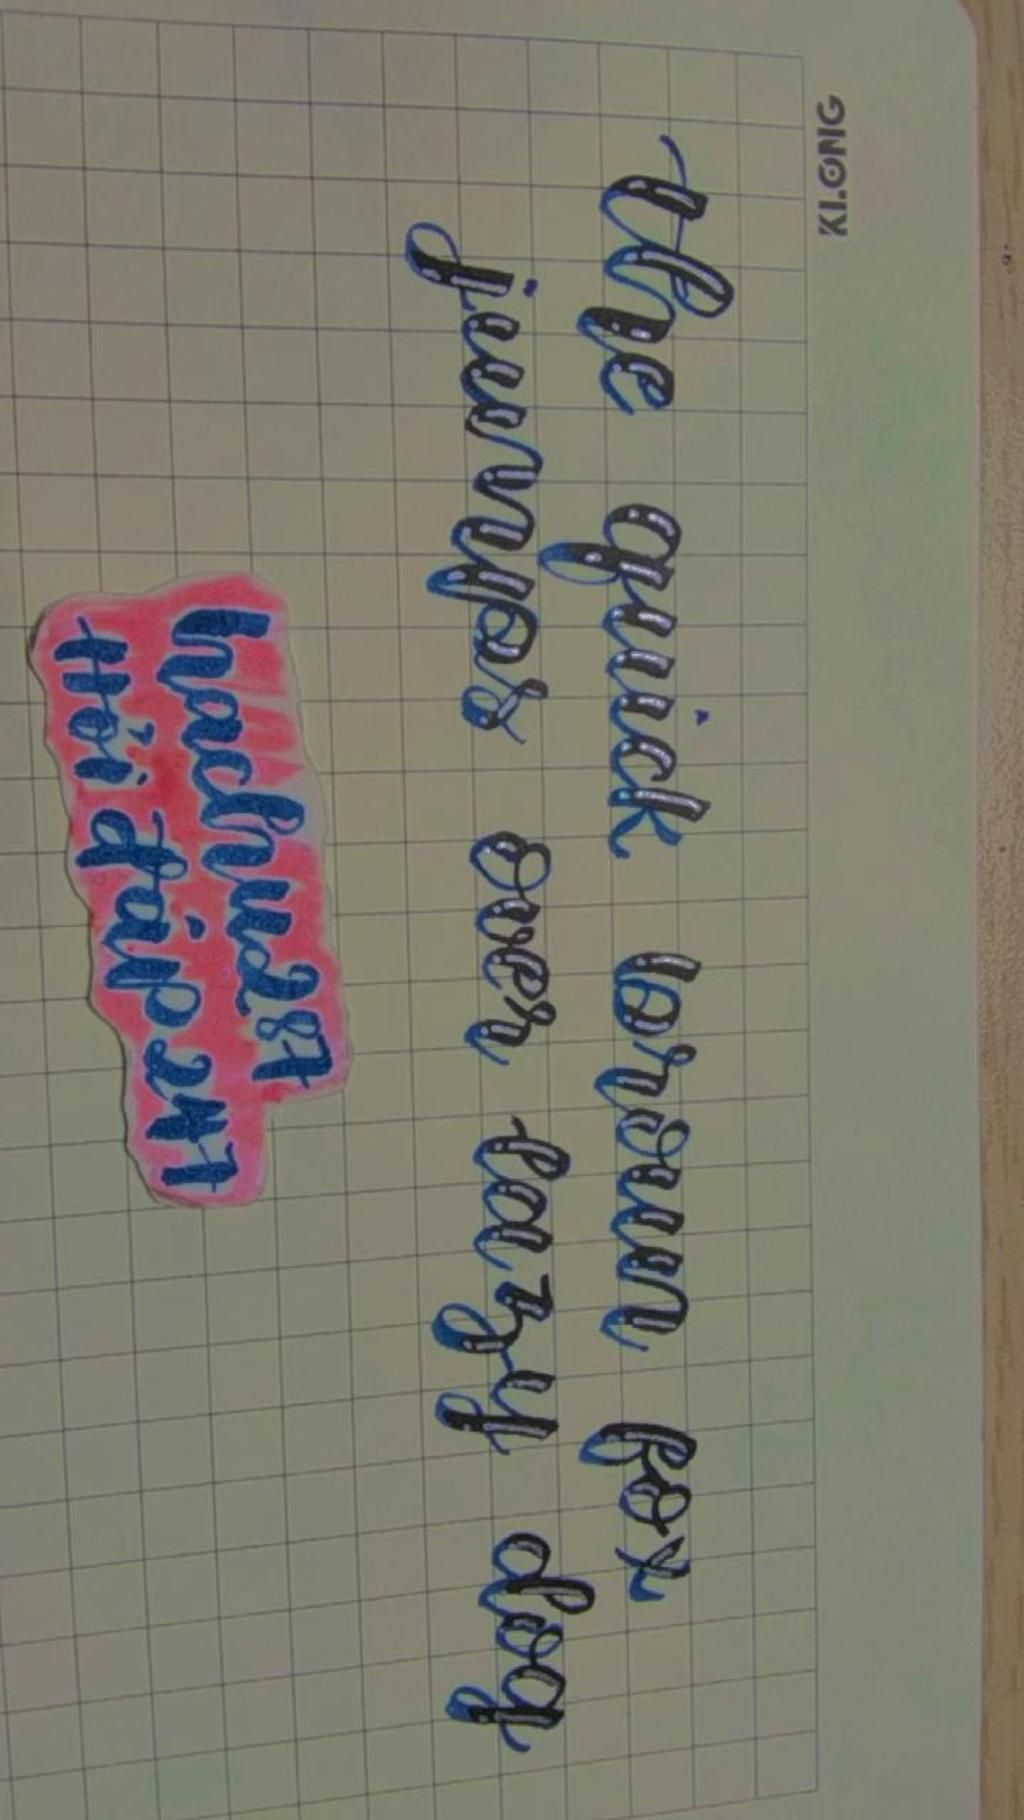 KLONG
the quick brown fox
jumps over lazy dog
hachu287
Hỏi đáp 247